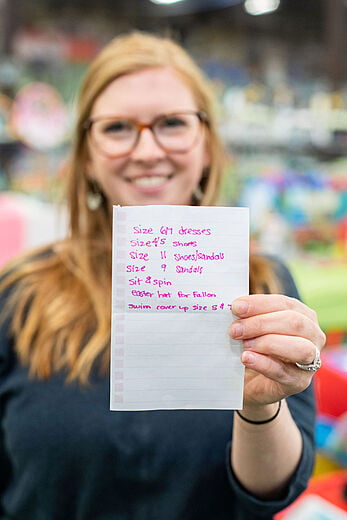 Size 6/7 dresses
Size 4/5 shorts
Size 11 Shoes/Sandals
Size 9 Sandals
Sit & spin
easter hat for Fallon
Swim cover up size 5 &